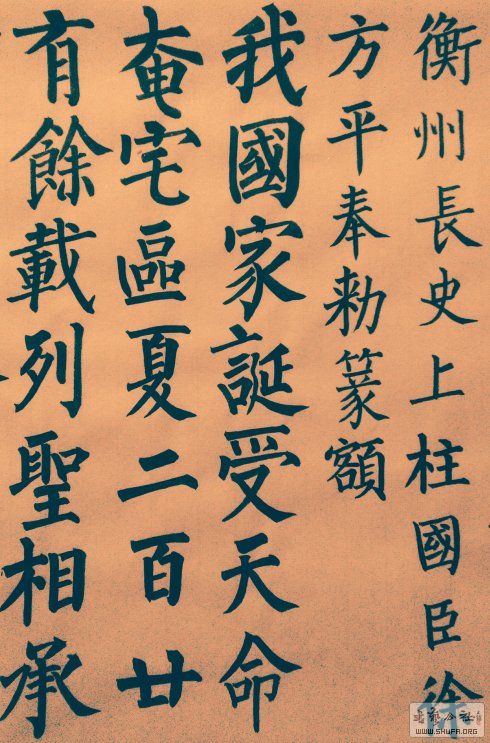 衡州長史上柱國臣徐
方平奉勅篆額
我國家誕受天命
奄宅區夏二百廿
有餘載列聖相承
WWW.SHUFA.ORG